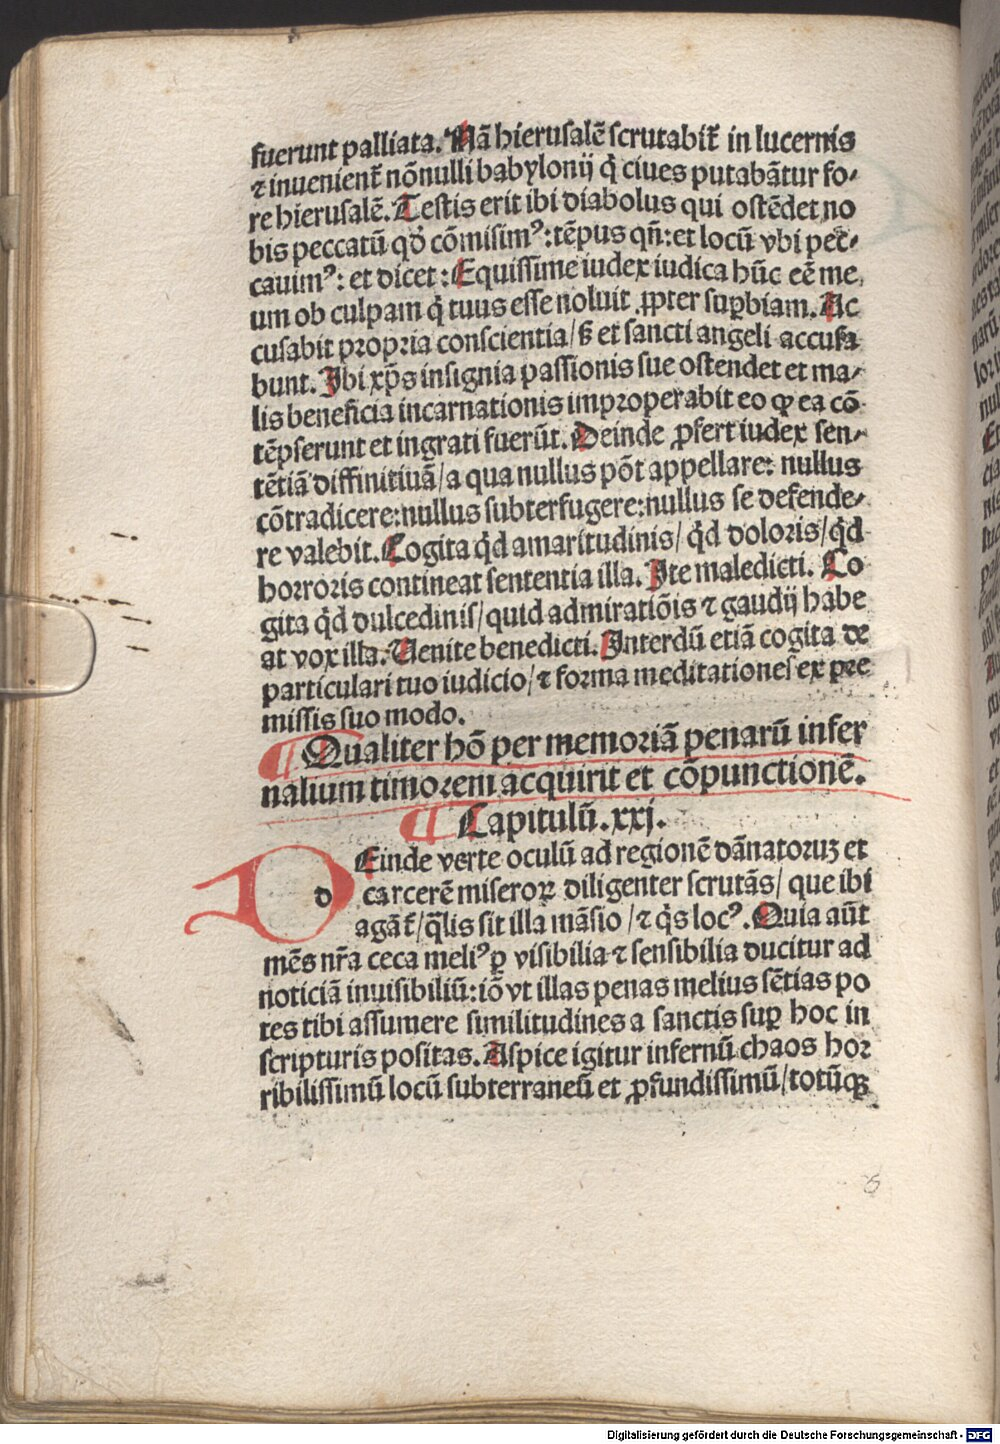 fuerunt palliata. Nã hierusalẽ scrutabit᷑ in lucernis
⁊ inuenient᷑ nõnulli babylonij q̇ ciues putabãtur fo⸗
re hierusalẽ. Testis erit ibi diabolus qui ostẽdet no
bis peccatũ qđ cõmisimꝰ: tẽpus qñ: et locũ vbi pec⸗
cauimꝰ: et dicet: Equissime iudex iudica hũc eẽ me,
um ob culpam q̇ tuus esse noluit ꝓpter suꝑbiam. Ac
cusabit propria conscientia/ s̃ et sancti angeli accusa
bunt. Ibi xp̃s insignia passionis sue ostendet et ma/
lis beneficia incarnationis improperabit eo ꝙ ea cõ⸗
tẽpserunt et ingrati fuerũt. Deinde ꝓfert iudex sen⸗
tẽtiã diffinitiuã/ a qua nullus põt appellare: nullus
cõtradicere: nullus subterfugere: nullus se defende⸗
re valebit. Cogita q̇d amaritudinis/ q̇d doloris/ q̇d
horroris contineat sententia illa. Ite maledicti. Co
gita q̇d dulcedinis/ quid admiratiõis ⁊ gaudij habe
at vox illa. Uenite benedicti. Interdũ etiã cogita de
particulari tuo iudicio/ ⁊ forma meditationes ex pre
missis suo modo.
¶ Qualiter hõ per memoriã penarũ infer
nalium timorem acquirit et cõpunctionẽ.
¶ Capitulũ. xxj.
d Einde verte oculũ ad regionẽ dãnatoruꝫ et
carcerẽ miseroꝝ diligenter scrutãs/ que ibi
agãt᷑/ q̃lis sit illa mãsio/ ⁊ q̇s locꝰ. Quia aũt
mẽs nr̃a ceca meliꝰ ꝑ visibilia ⁊ sensibilia ducitur ad
noticiã inuisibiliũ: iõ vt illas penas melius sẽtias po
tes tibi assumere similitudines a sanctis suꝑ hoc in
scripturis positas. Aspice igitur infernũ chaos hor
ribilissimũ locũ subterraneũ et ꝓfundissimũ/ totũqꝫ
Digitalisierung gefördert durch die Deutsche Forschungsgemeinschaft - DFG